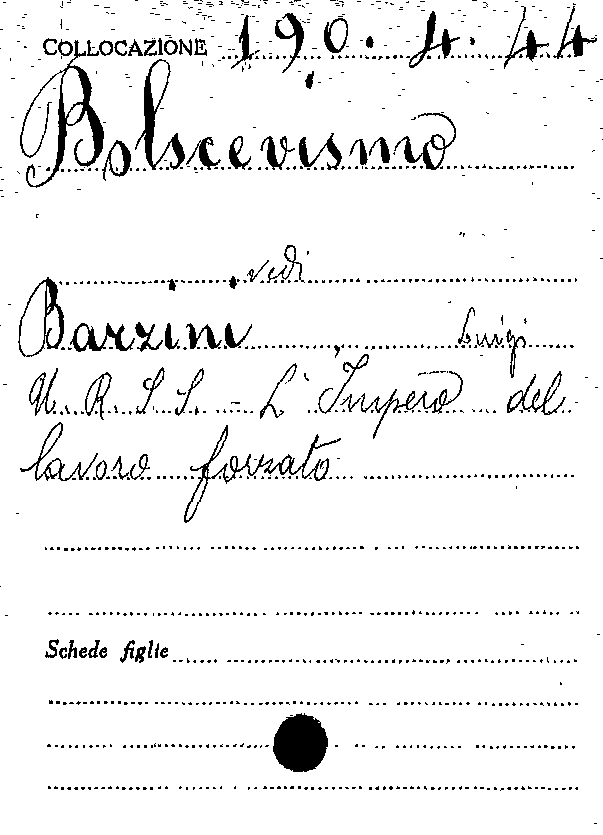 COLLOCAZIONE 190. 4. 44
Bolscevismo
vedi
Barzini, Luigi
U.R.S.S. - L'Impero del
lavoro forzato
Schede figlie